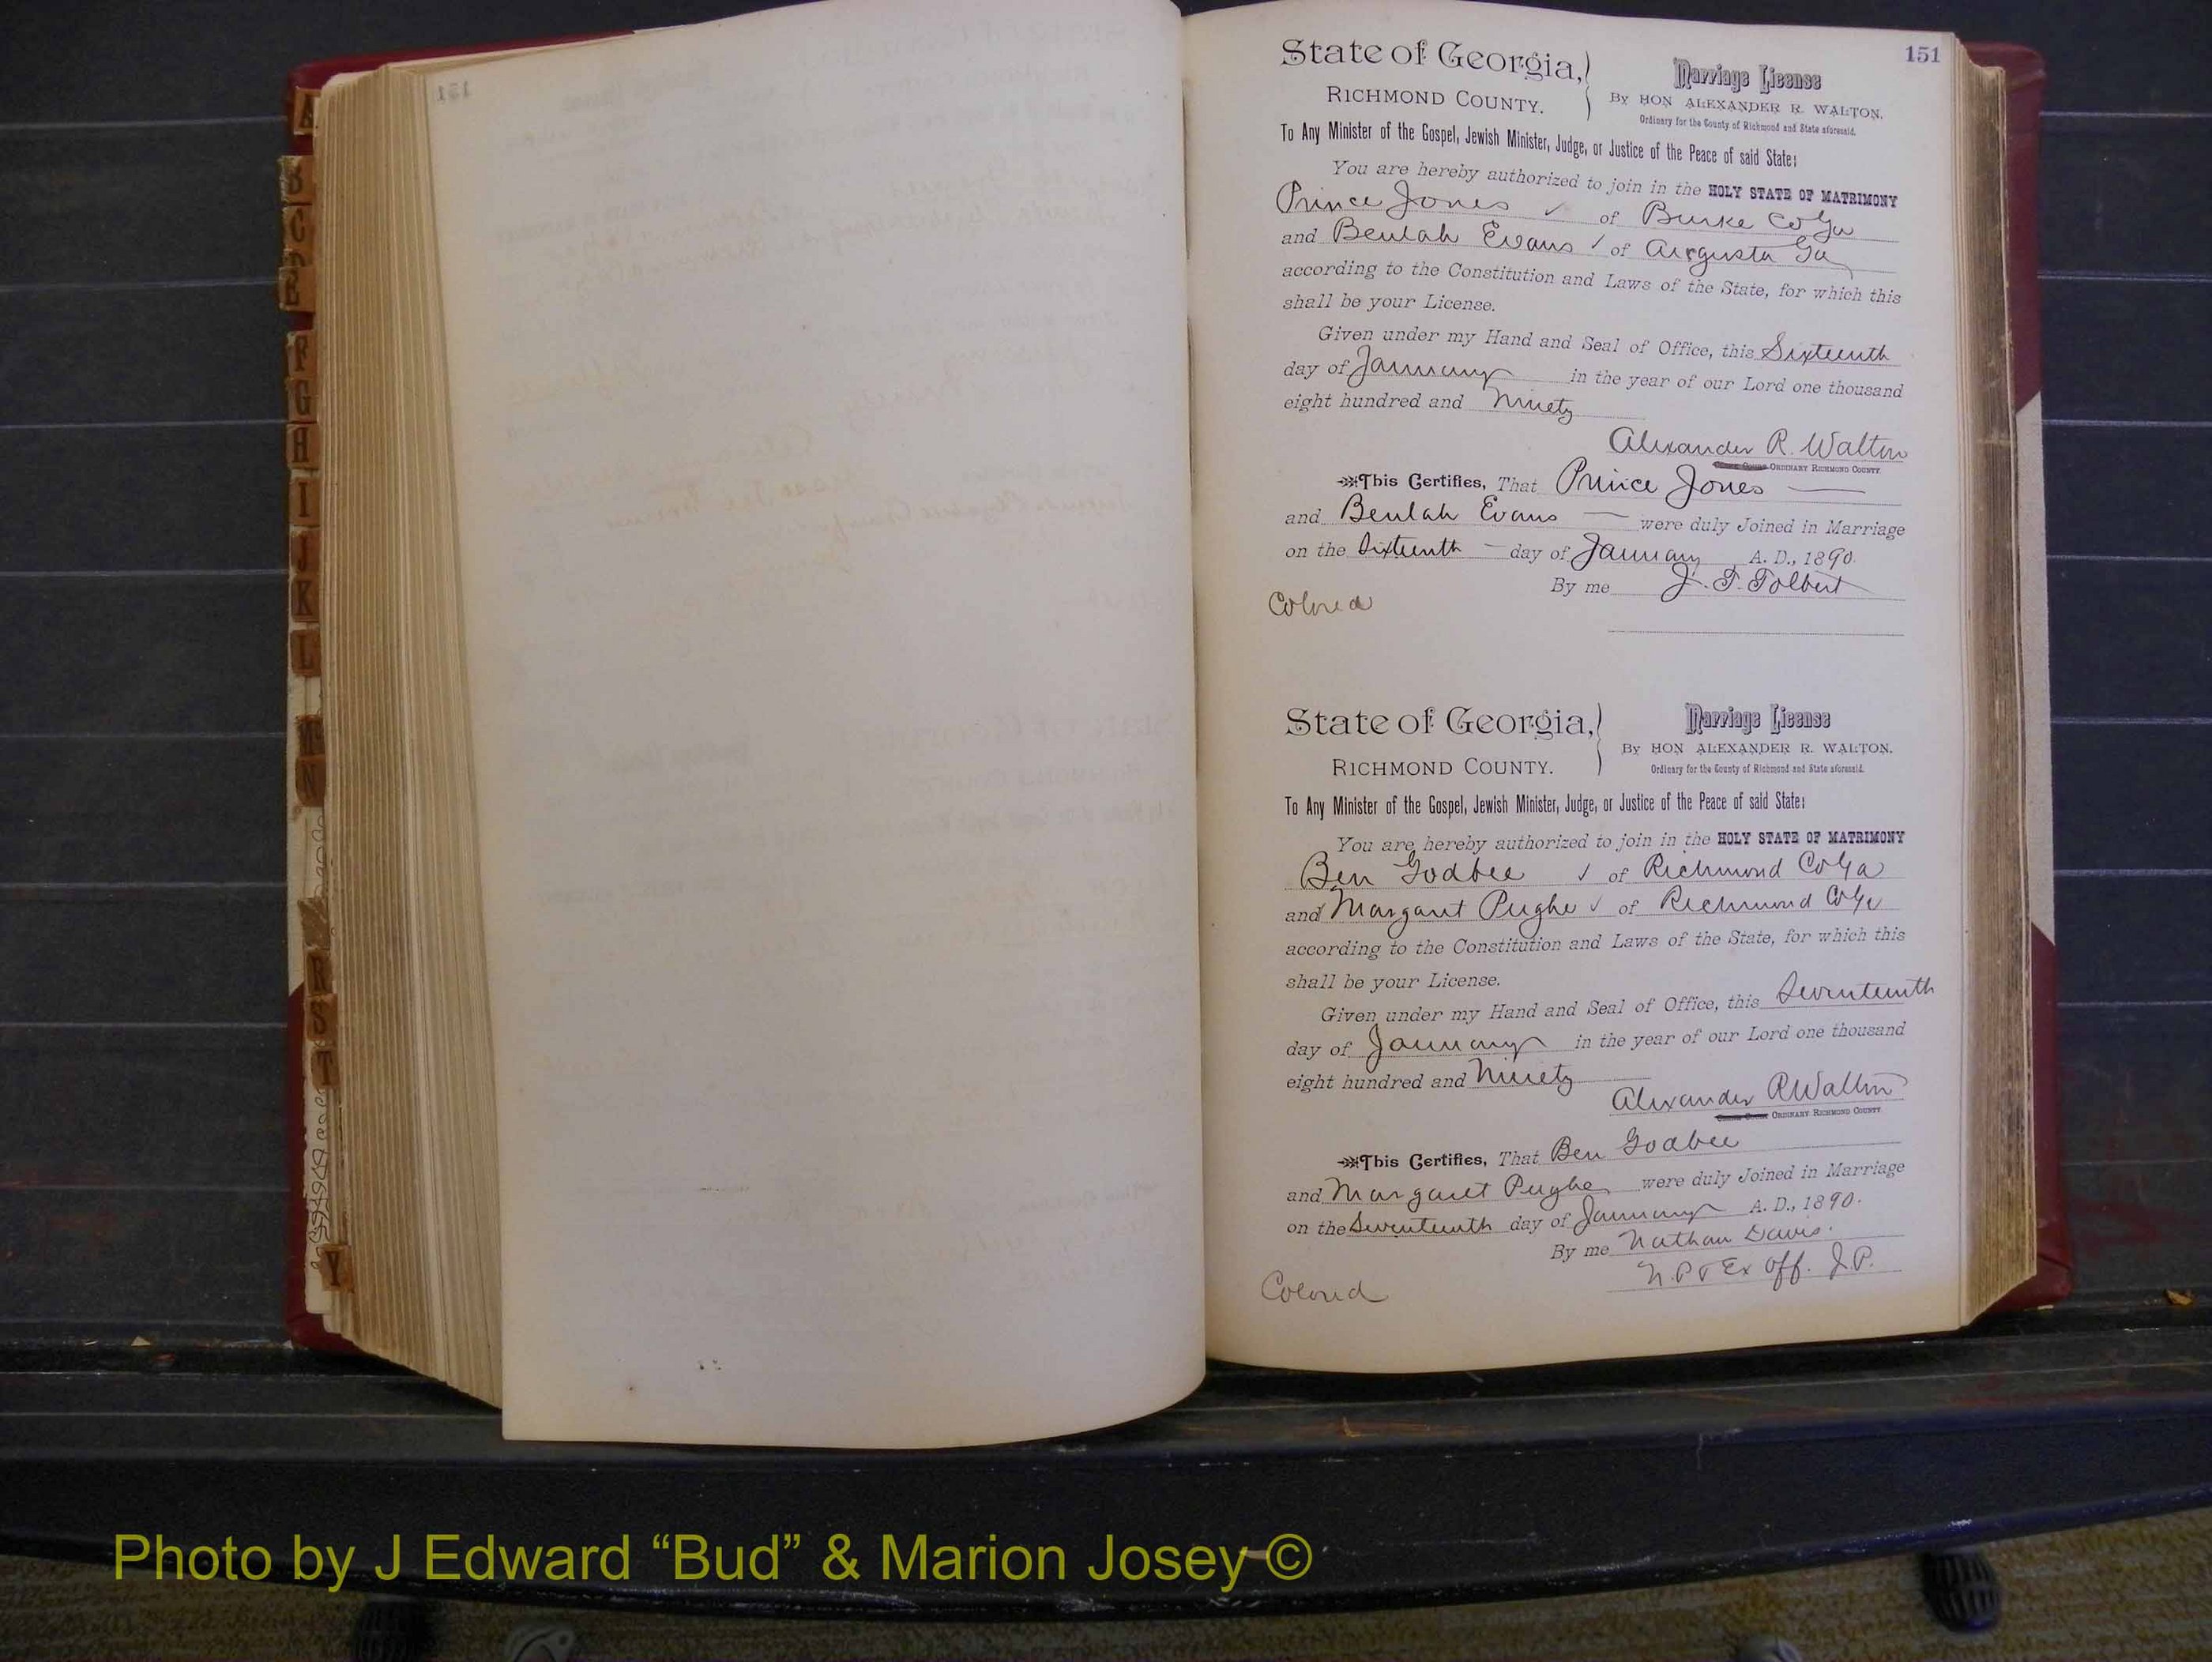 151
State of Georgia,
RICHMOND COUNTY.
Marriage License
By HON ALEXANDER R. WALTON.
Ordinary for the County of Richmond and State aforesaid.
To Any Minister of the Gospel, Jewish Minister, Judge, or Justice of the Peace of said State:
You are hereby authorized to join in the HOLY STATE OF MATRIMONY
Prince Jones ✓ of Burke Co Ga
and Beulah Evans ✓ of Augusta Ga
according to the Constitution and Laws of the State, for which this
shall be your License.
Given under my Hand and Seal of Office, this Sixteenth
day of January in the year of our Lord one thousand
eight hundred and Ninety
Alexander R. Walton
ORDINARY RICHMOND COUNTY.
This Certifies, That Prince Jones —
and Beulah Evans — were duly Joined in Marriage
on the Sixteenth — day of January A. D., 1890.
By me J. T. Tolbert
Colored
State of Georgia,
RICHMOND COUNTY.
Marriage License
By HON ALEXANDER R. WALTON.
Ordinary for the County of Richmond and State aforesaid.
To Any Minister of the Gospel, Jewish Minister, Judge, or Justice of the Peace of said State:
You are hereby authorized to join in the HOLY STATE OF MATRIMONY
Ben Godbee ✓ of Richmond Co Ga
and Margaret Pughe ✓ of Richmond Co Ga
according to the Constitution and Laws of the State, for which this
shall be your License.
Given under my Hand and Seal of Office, this Seventeenth
day of January in the year of our Lord one thousand
eight hundred and Ninety
Alexander R Walton
ORDINARY RICHMOND COUNTY.
This Certifies, That Ben Godbee
and Margaret Pughe were duly Joined in Marriage
on the Seventeenth day of January A. D., 1890.
By me Nathan Davis.
N. P & Ex Off. J. P.
Colored
151
A
B
C
E
F
G
H
I
J
K
L
Mc
N
R
S
T
Y
Photo by J Edward “Bud” & Marion Josey ©